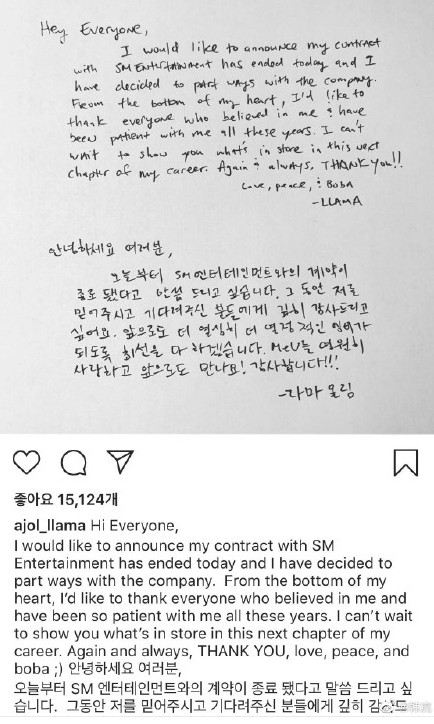 Hey Everyone,
I would like to announce my contract
with SM Entertainment has ended today and I
have decided to part ways with the company.
From the bottom of my heart, I'd like to
thank everyone who believed in me & have
been patient with me all these years. I can't
wait to show you what's in store in this next
chapter of my career. Again & always, THANK YOU!!
Love, peace, & Boba
-LLAMA
안녕하세요 여러분,
오늘부터 SM엔터테인먼트와의 계약이
종료 됐다고 말씀 드리고 싶습니다. 그동안 저를
믿어주시고 기다려주신 분들에게 깊히 감사드리고
싶어요. 앞으로도 더 열심히 더 열정적인 엠버가
되도록 최선을 다 하겠습니다. MeU들 영원히
사랑하고 앞으로도 만나요! 감사합니다!!!
-라마 올림
좋아요 15,124개
ajol_llama Hi Everyone,
I would like to announce my contract with SM
Entertainment has ended today and I have decided to
part ways with the company. From the bottom of my
heart, I'd like to thank everyone who believed in me and
have been so patient with me all these years. I can't wait
to show you what's in store in this next chapter of my
career. Again and always, THANK YOU, love, peace, and
boba ;) 안녕하세요 여러분,
오늘부터 SM 엔터테인먼트와의 계약이 종료 됐다고 말씀 드리고 싶
습니다. 그동안 저를 믿어주시고 기다려주신 분들에게 깊히